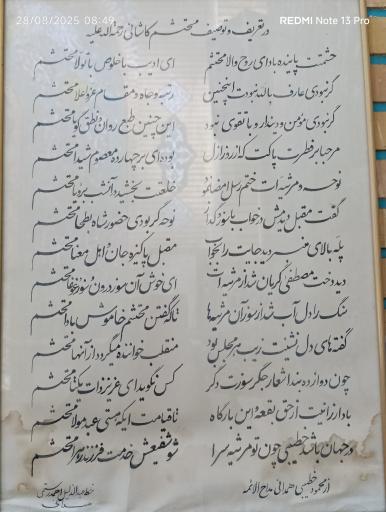 28/08/2025 08:49
REDMI Note 13 Pro
در تعریف و توصیف محتشم کاشانی رحمة الله علیه
حشمتت پاینده بادا ای روح والا محتشم
ای ادیب با خلوص با تولا محتشم
گر نبودی عارف بالله نبودت اینچنین
رتبه و جاه و مقام عز و اعلا محتشم
گر نبودی مؤمن و دیندار و با تقوی نبود
این چنین طبع روان و نطق گویا محتشم
مرحبا بر فطرت پاکت که از روز ازل
بوده‌ای بر چهارده معصوم شیدا محتشم
نوحه و مرثیه‌ات ختم رسل
خلعتت بخشید و آنشب محتشم
گفت مقبل دیدمش در خواب با سوز و گداز
نوحه گر بودی حضور شاه بطحا محتشم
پله بالای منبر جایت را
مقبل پاکیزه جان و اهل معنا محتشم
دید وقت مصطفی گریان شد از مرثیه‌ات
ای خوش آن سوز درون محتشم
سنگ را دل آب شد از سوز آن مرثیه‌ها
تا گفتن محتشم خاموش محتشم
گفته‌های دل نشینت زیب هر مجلس بود
منقلب خواننده میگردد از آنها محتشم
چون دوازده بند اشعار جگر سوزت دگر
کس نگوید ای عزیز ذات یکتا محتشم
بادا رزانیت از حق بقعه این بارگاه
تا قیامت ایکه هستی عبد مولا محتشم
در جهان باشد خطیبی چون تو مرثیه سرا
شو شفیعش خدمت فرزند زهرا محتشم
از محمود خطیبی همدانی مداح الائمه